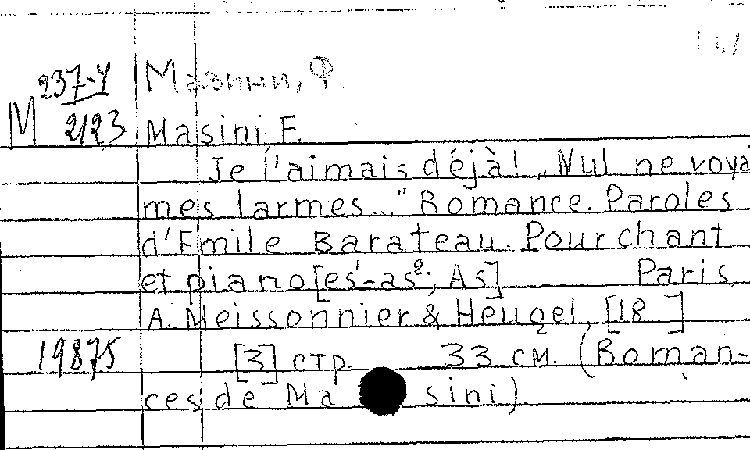 237-У Мазини, Ф.
М 2123 Masini F.
Je l'aimais déjà! „Nul ne voya
mes larmes..." Romance. Paroles
d'Emile Barateau. Pour chant
et piano [es¹-as²; As] Paris,
A. Meissonnier & Heugel, [18 ]
19875 [3] стр. 33 см. (Roman-
ces de Masini)